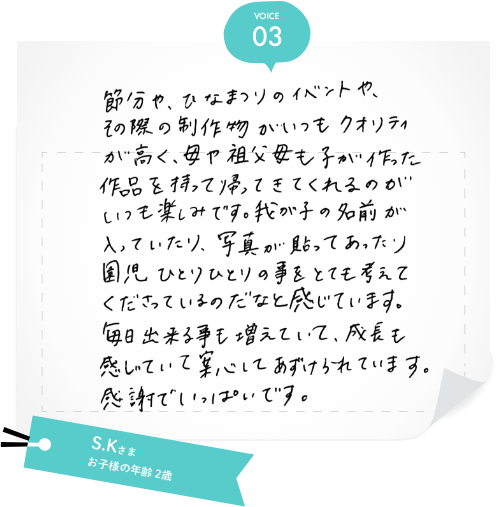 VOICE
03
節分や、ひなまつりのイベントや、
その際の制作物がいつもクオリティ
が高く、母や祖父母も子が作った
作品を持って帰ってきてくれるのが
いつも楽しみです。我が子の名前が
入っていたり、写真が貼ってあったり
園児ひとりひとりの事をとても考えて
くださっているのだなと感じています。
毎日出来る事も増えていて、成長も
感じていて安心してあずけられています。
感謝でいっぱいです。
S.Kさま
お子様の年齢 2歳